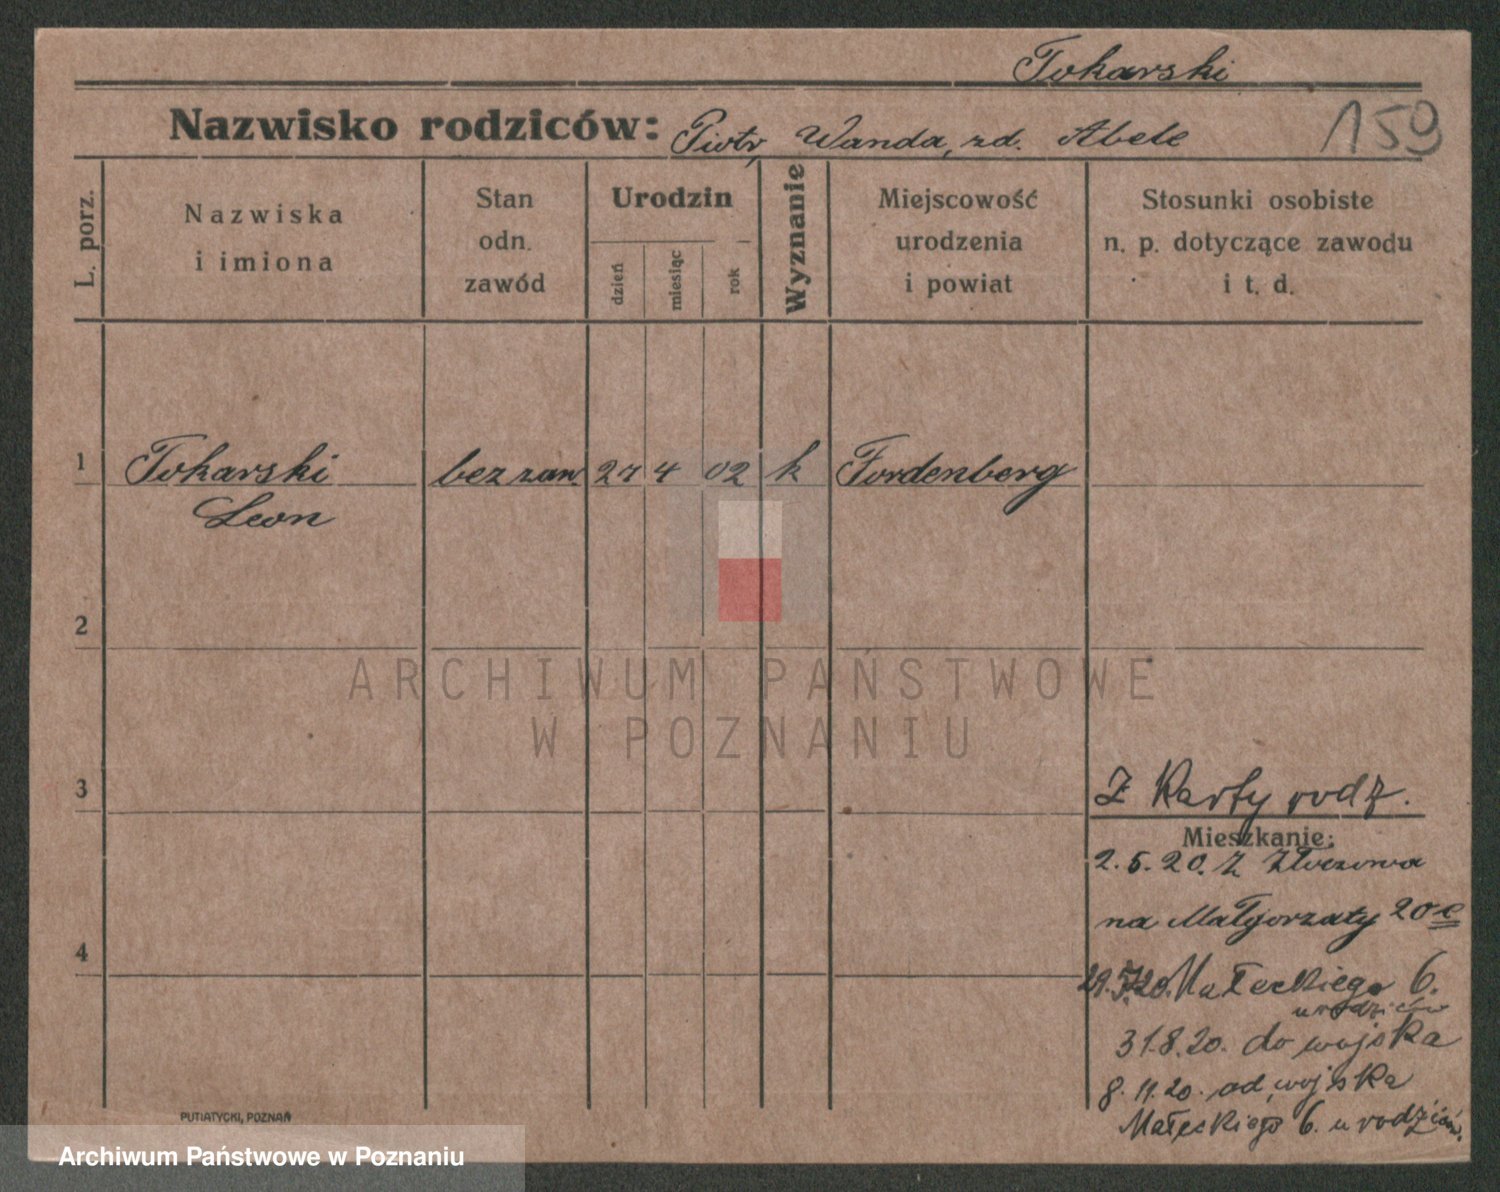 Tokarski
Nazwisko rodziców: Piotr, Wanda, zd. Abele
159
L. porz.
Nazwiska
i imiona
Stan
odn.
zawód
Urodzin
dzień
miesiąc
rok
Wyznanie
Miejscowość
urodzenia
i powiat
Stosunki osobiste
n. p. dotyczące zawodu
i t. d.
1 Tokarski bez zaw 27 4 02 k Fordenberg
Leon
2
ARCHIWUM PAŃSTWOWE
W POZNANIU
3
Z Karty rodz.
Mieszkanie:
2.5.20. z Złoczowa
na Małgorzaty 20 e
4
29.5.20. Małeckiego 6.
u rodziców
31.8.20. do wojska
8.11.20. od wojska
Małeckiego 6. u rodziców.
PUTIATYCKI, POZNAŃ
Archiwum Państwowe w Poznaniu